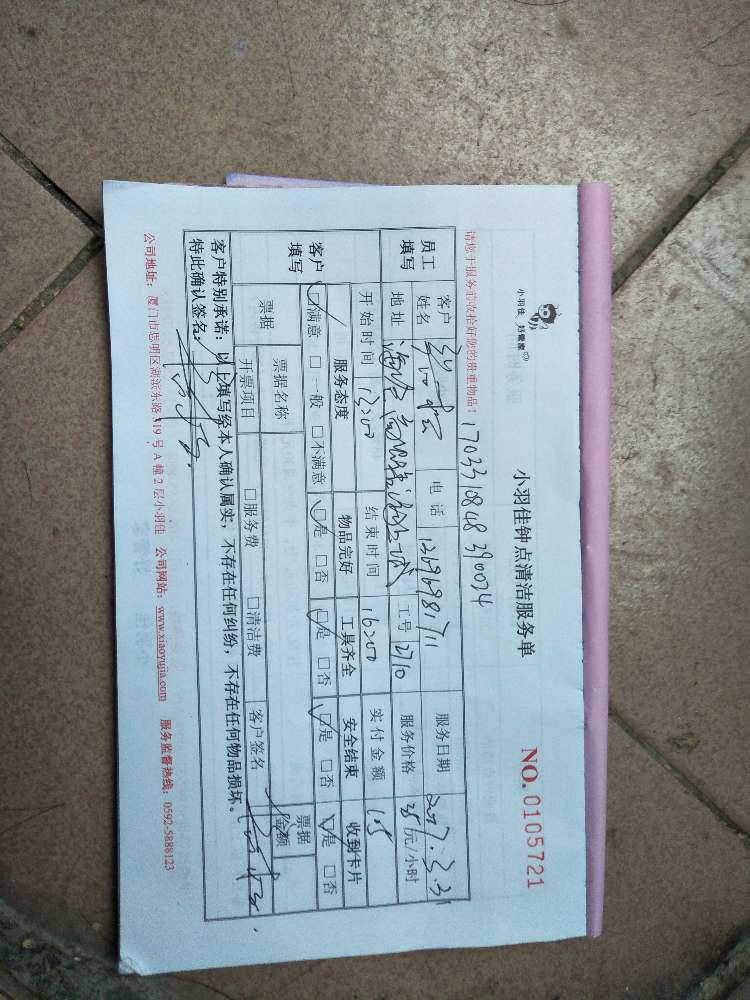 小羽佳 好管家
小羽佳钟点清洁服务单
NO. 0105721
请您于服务前收拾好您的贵重物品！
1703310848390034
员工填写 客户姓名 电话 服务日期 2017.3.31
地址 工号 2710 服务价格 35元/小时
开始时间 13:00 结束时间 16:00 实付金额 105
客户填写 服务态度 物品完好 工具齐全 安全结束 收到卡片
☑满意 □一般 □不满意 ☑是 □否 ☑是 □否 ☑是 □否 ☑是 □否
票据 票据名称 票据金额
开票项目 □服务费 □清洁费 客户签名
客户特别承诺：以上填写经本人确认属实，不存在任何纠纷，不存在任何物品损坏。
特此确认签名：
公司地址：厦门市思明区湖滨东路119号A幢2层小羽佳 公司网站：www.xiaoyujia.com 服务监督热线：0592-5888123